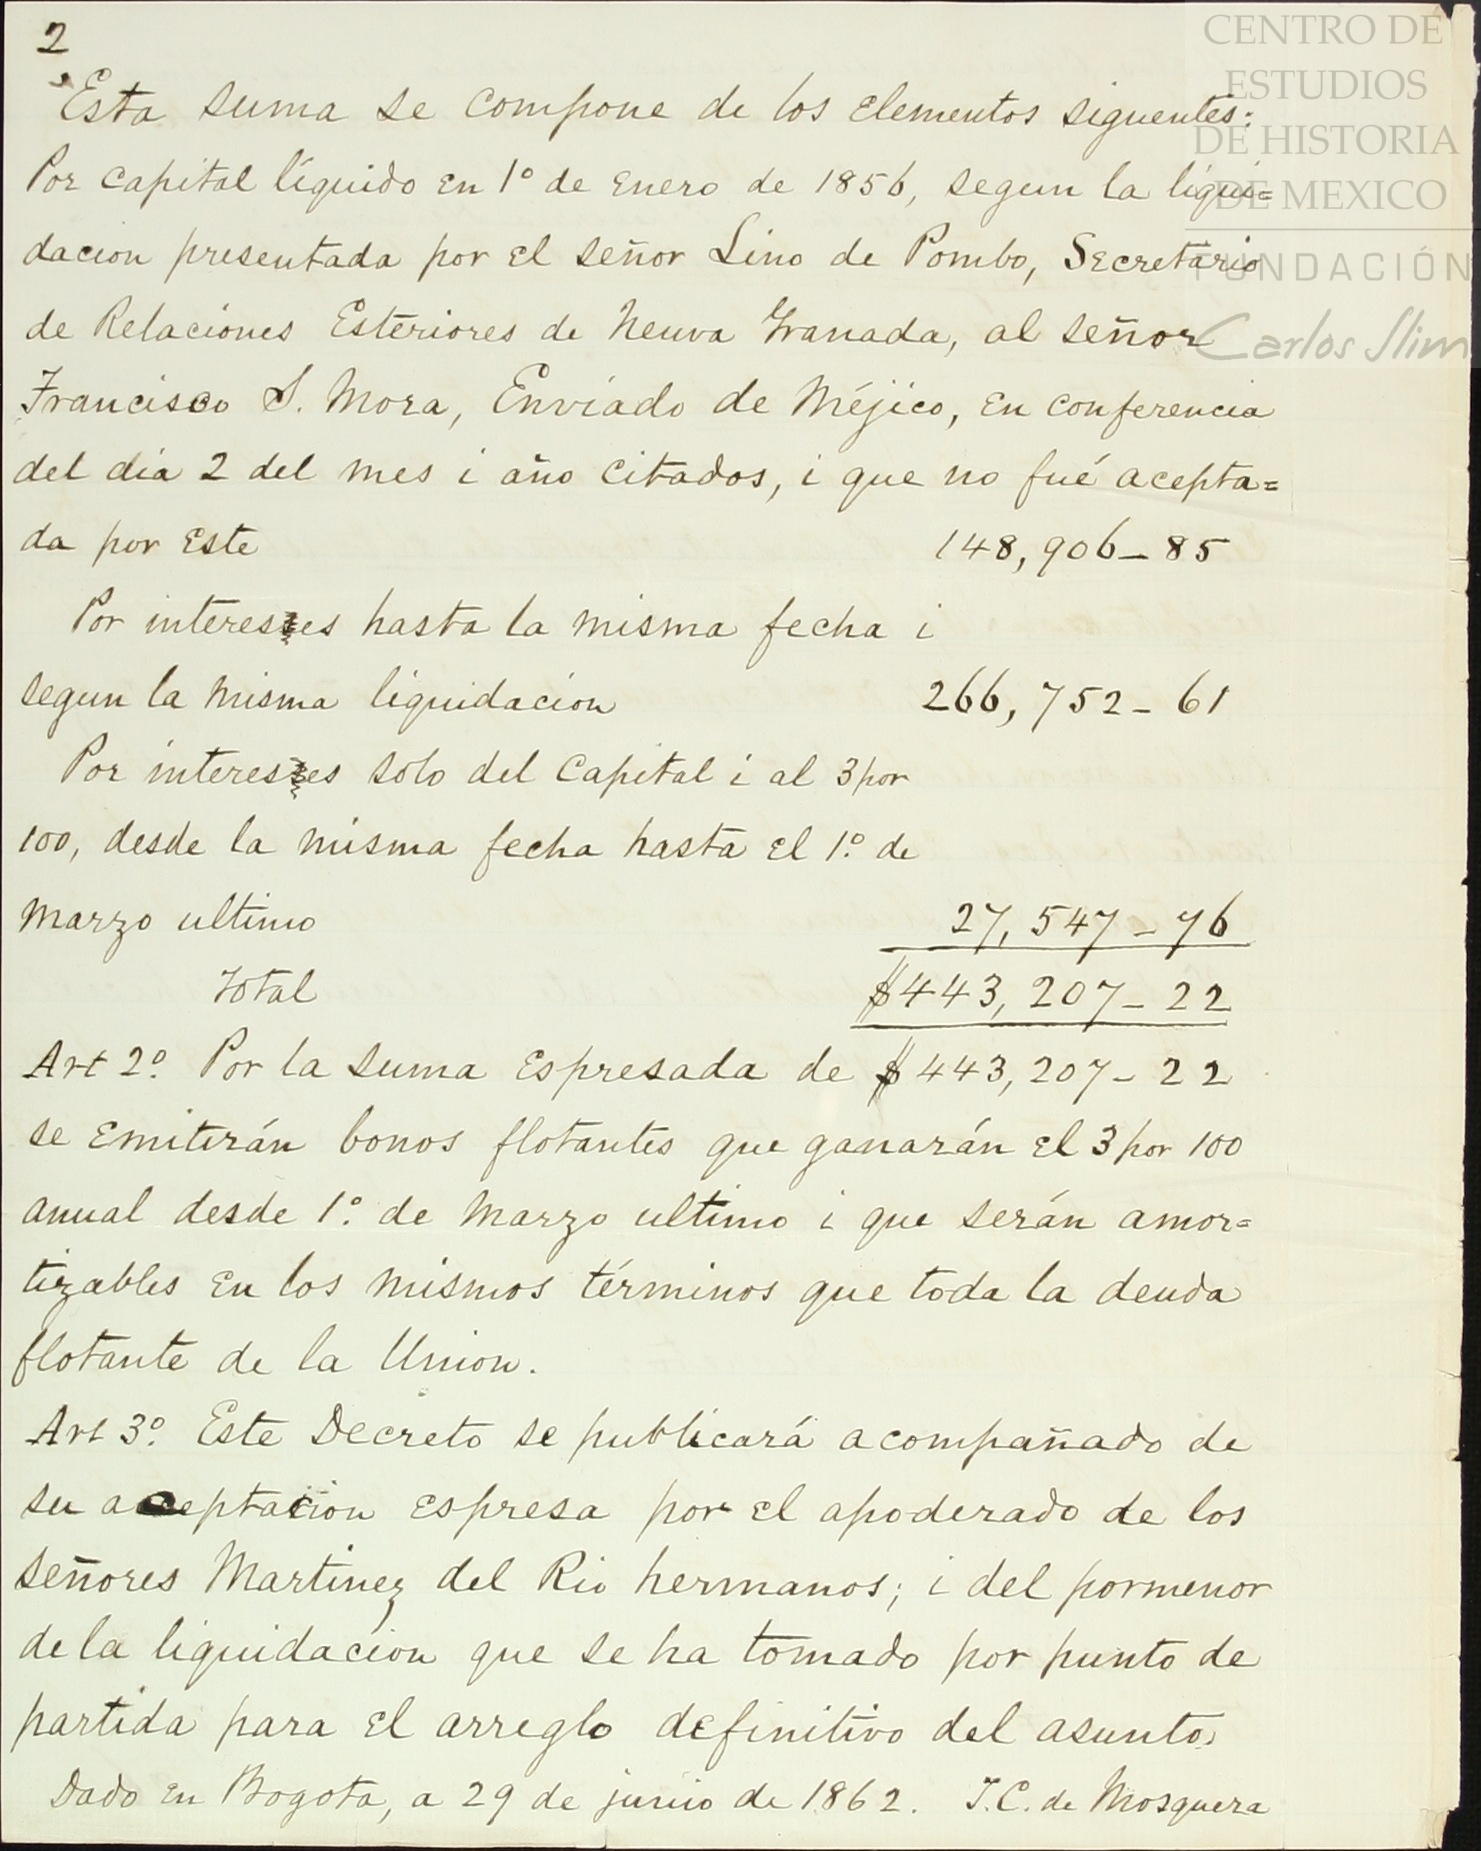 2
CENTRO DE
ESTUDIOS
DE HISTORIA
DE MEXICO
FUNDACIÓN
Carlos Slim
Esta suma se compone de los elementos siguentes:
Por capital líquido en 1º de Enero de 1856, segun la liqui=
dacion presentada por el señor Lino de Pombo, Secretario
de Relaciones Esteriores de Neuva Granada, al señor
Francisco S. Mora, Enviado de Méjico, en conferencia
del dia 2 del mes i año citados, i que no fué acepta=
da por este 148,906-85
Por intereses hasta la misma fecha i
segun la misma liquidacion 266,752-61
Por intereses solo del Capital i al 3 por
100, desde la misma fecha hasta el 1º. de
Marzo ultimo 27,547-76
Total $443,207-22
Art 2º. Por la suma espresada de $443,207-22
se emitirán bonos flotantes que ganarán el 3 por 100
anual desde 1º. de Marzo ultimo i que serán amor=
tizables en los mismos términos que toda la deuda
flotante de la Union.
Art 3º. Este Decreto se publicará acompañado de
su aceptacion espresa por el apoderado de los
señores Martinez del Rio hermanos; i del pormenor
de la liquidacion que se ha tomado por punto de
partida para el arreglo definitivo del asunto.
Dado en Bogota, a 29 de junio de 1862. T.C. de Mosquera